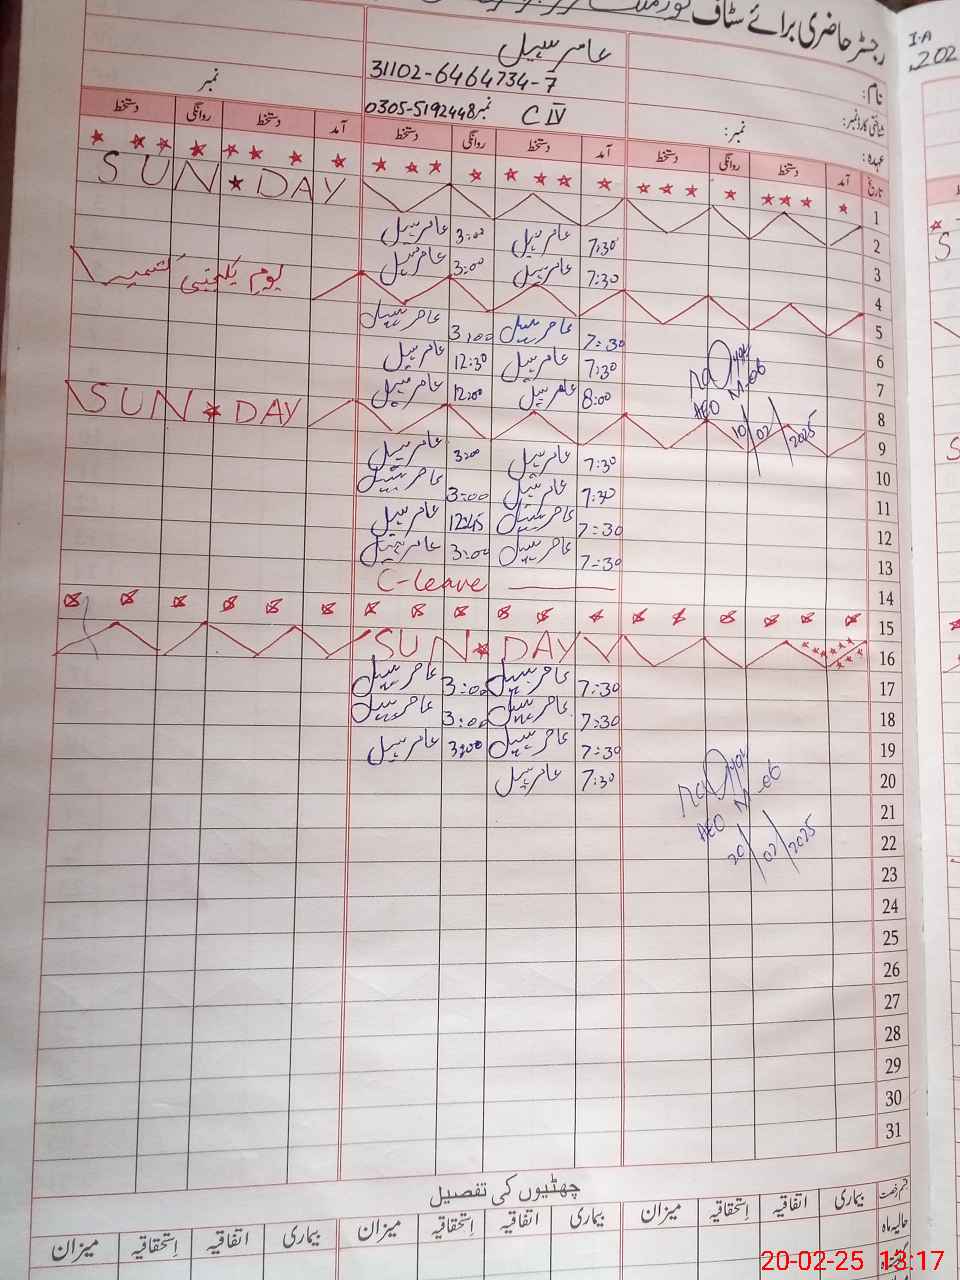 رجسٹر حاضری برائے سٹاف گورنمنٹ
I.A
202
نام: عامر سہیل
شناختی کارڈ نمبر: 31102-6464734-7
عہدہ: نمبر: C IV نمبر 0305-5192448 نمبر
تاریخ آمد دستخط روانگی دستخط آمد دستخط روانگی دستخط آمد دستخط روانگی دستخط
1
SUN DAY
2
3 7:30 عامر سہیل 3:00 عامر سہیل
4 7:30 عامر سہیل 3:00 عامر سہیل
5 یوم یکجہتی کشمیر
6 7:30 عامر سہیل 3:00 عامر سہیل
7 7:30 عامر سہیل 12:30 عامر سہیل
8 8:00 عامر سہیل 12:00 عامر سہیل
AEO M-06
10/02/2025
9 SUN DAY
10 7:30 عامر سہیل 3:00 عامر سہیل
11 7:30 عامر سہیل 3:00 عامر سہیل
12 7:30 عامر سہیل 12:45 عامر سہیل
13 7:30 عامر سہیل 3:00 عامر سہیل
14 C-leave
15
16 SUN DAY
17 7:30 عامر سہیل 3:00 عامر سہیل
18 7:30 عامر سہیل 3:00 عامر سہیل
19 7:30 عامر سہیل 3:00 عامر سہیل
20 7:30 عامر سہیل
AEO M-06
20/02/2025
21
22
23
24
25
26
27
28
29
30
31
چھٹیوں کی تفصیل
قسم رخصت بیماری اتفاقیہ اِستحقاقیہ میزان بیماری اتفاقیہ اِستحقاقیہ میزان بیماری اتفاقیہ اِستحقاقیہ میزان
حالیہ ماہ
20-02-25 13:17